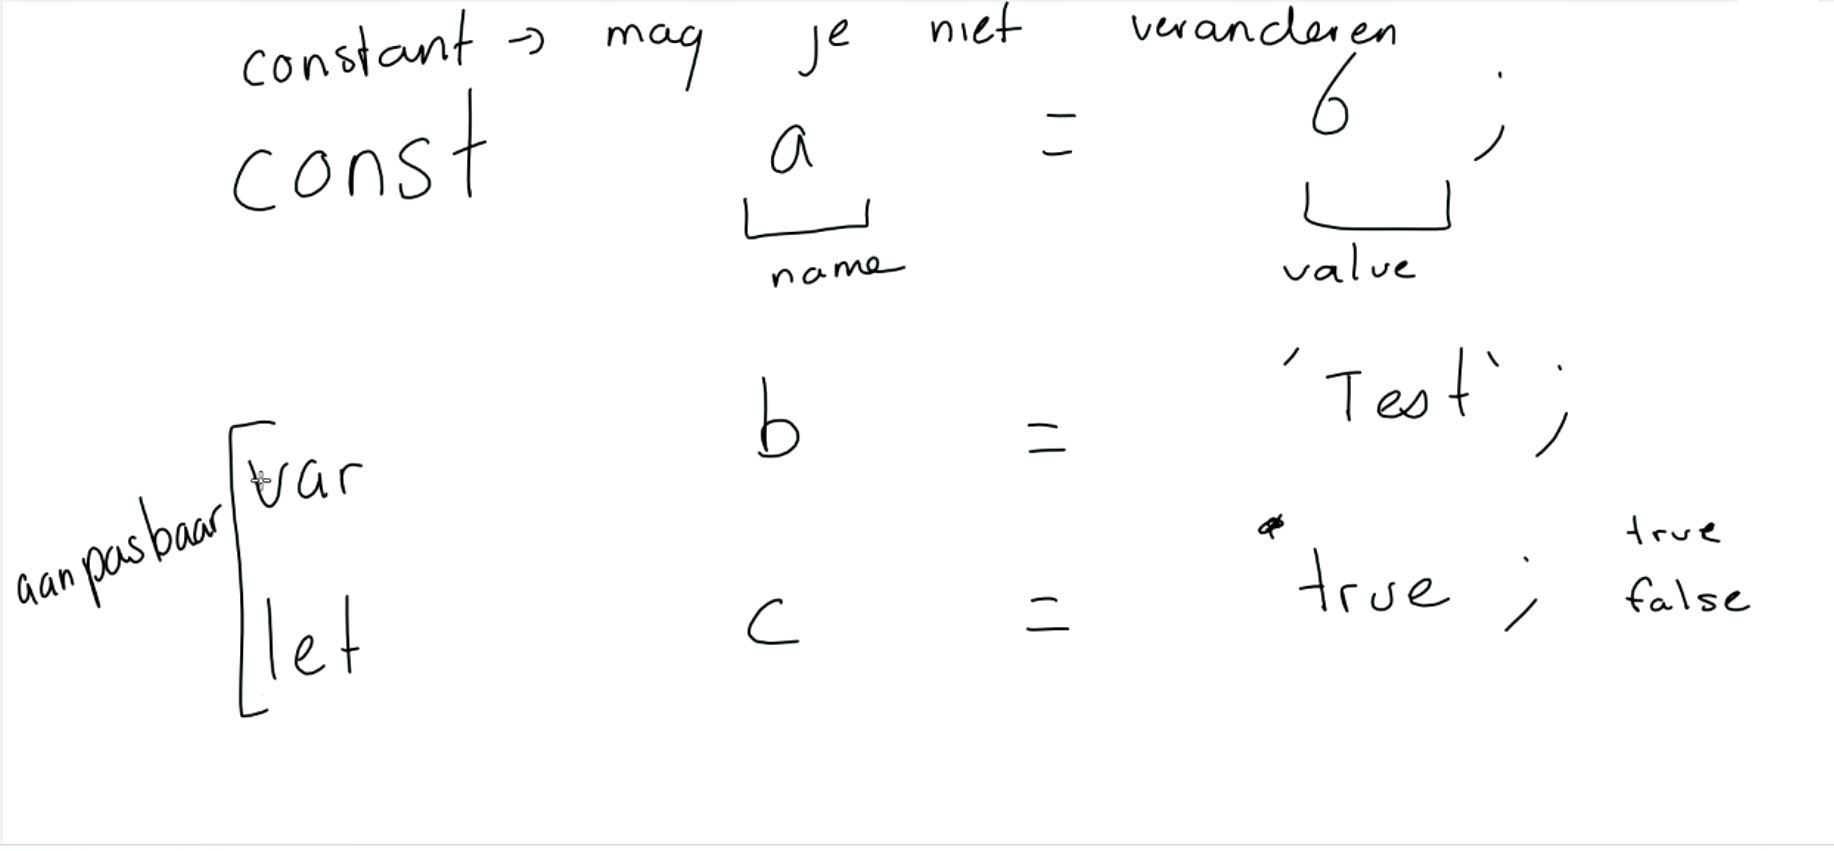 constant → mag je niet veranderen
const a = 6 ;
name value
var b = 'Test' ;
aanpasbaar
let c = true ;
true
false